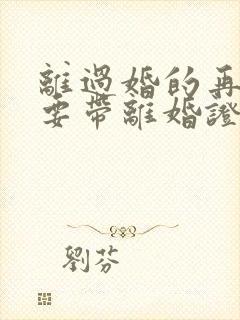 離過婚的再
要帶離婚證
劉芬